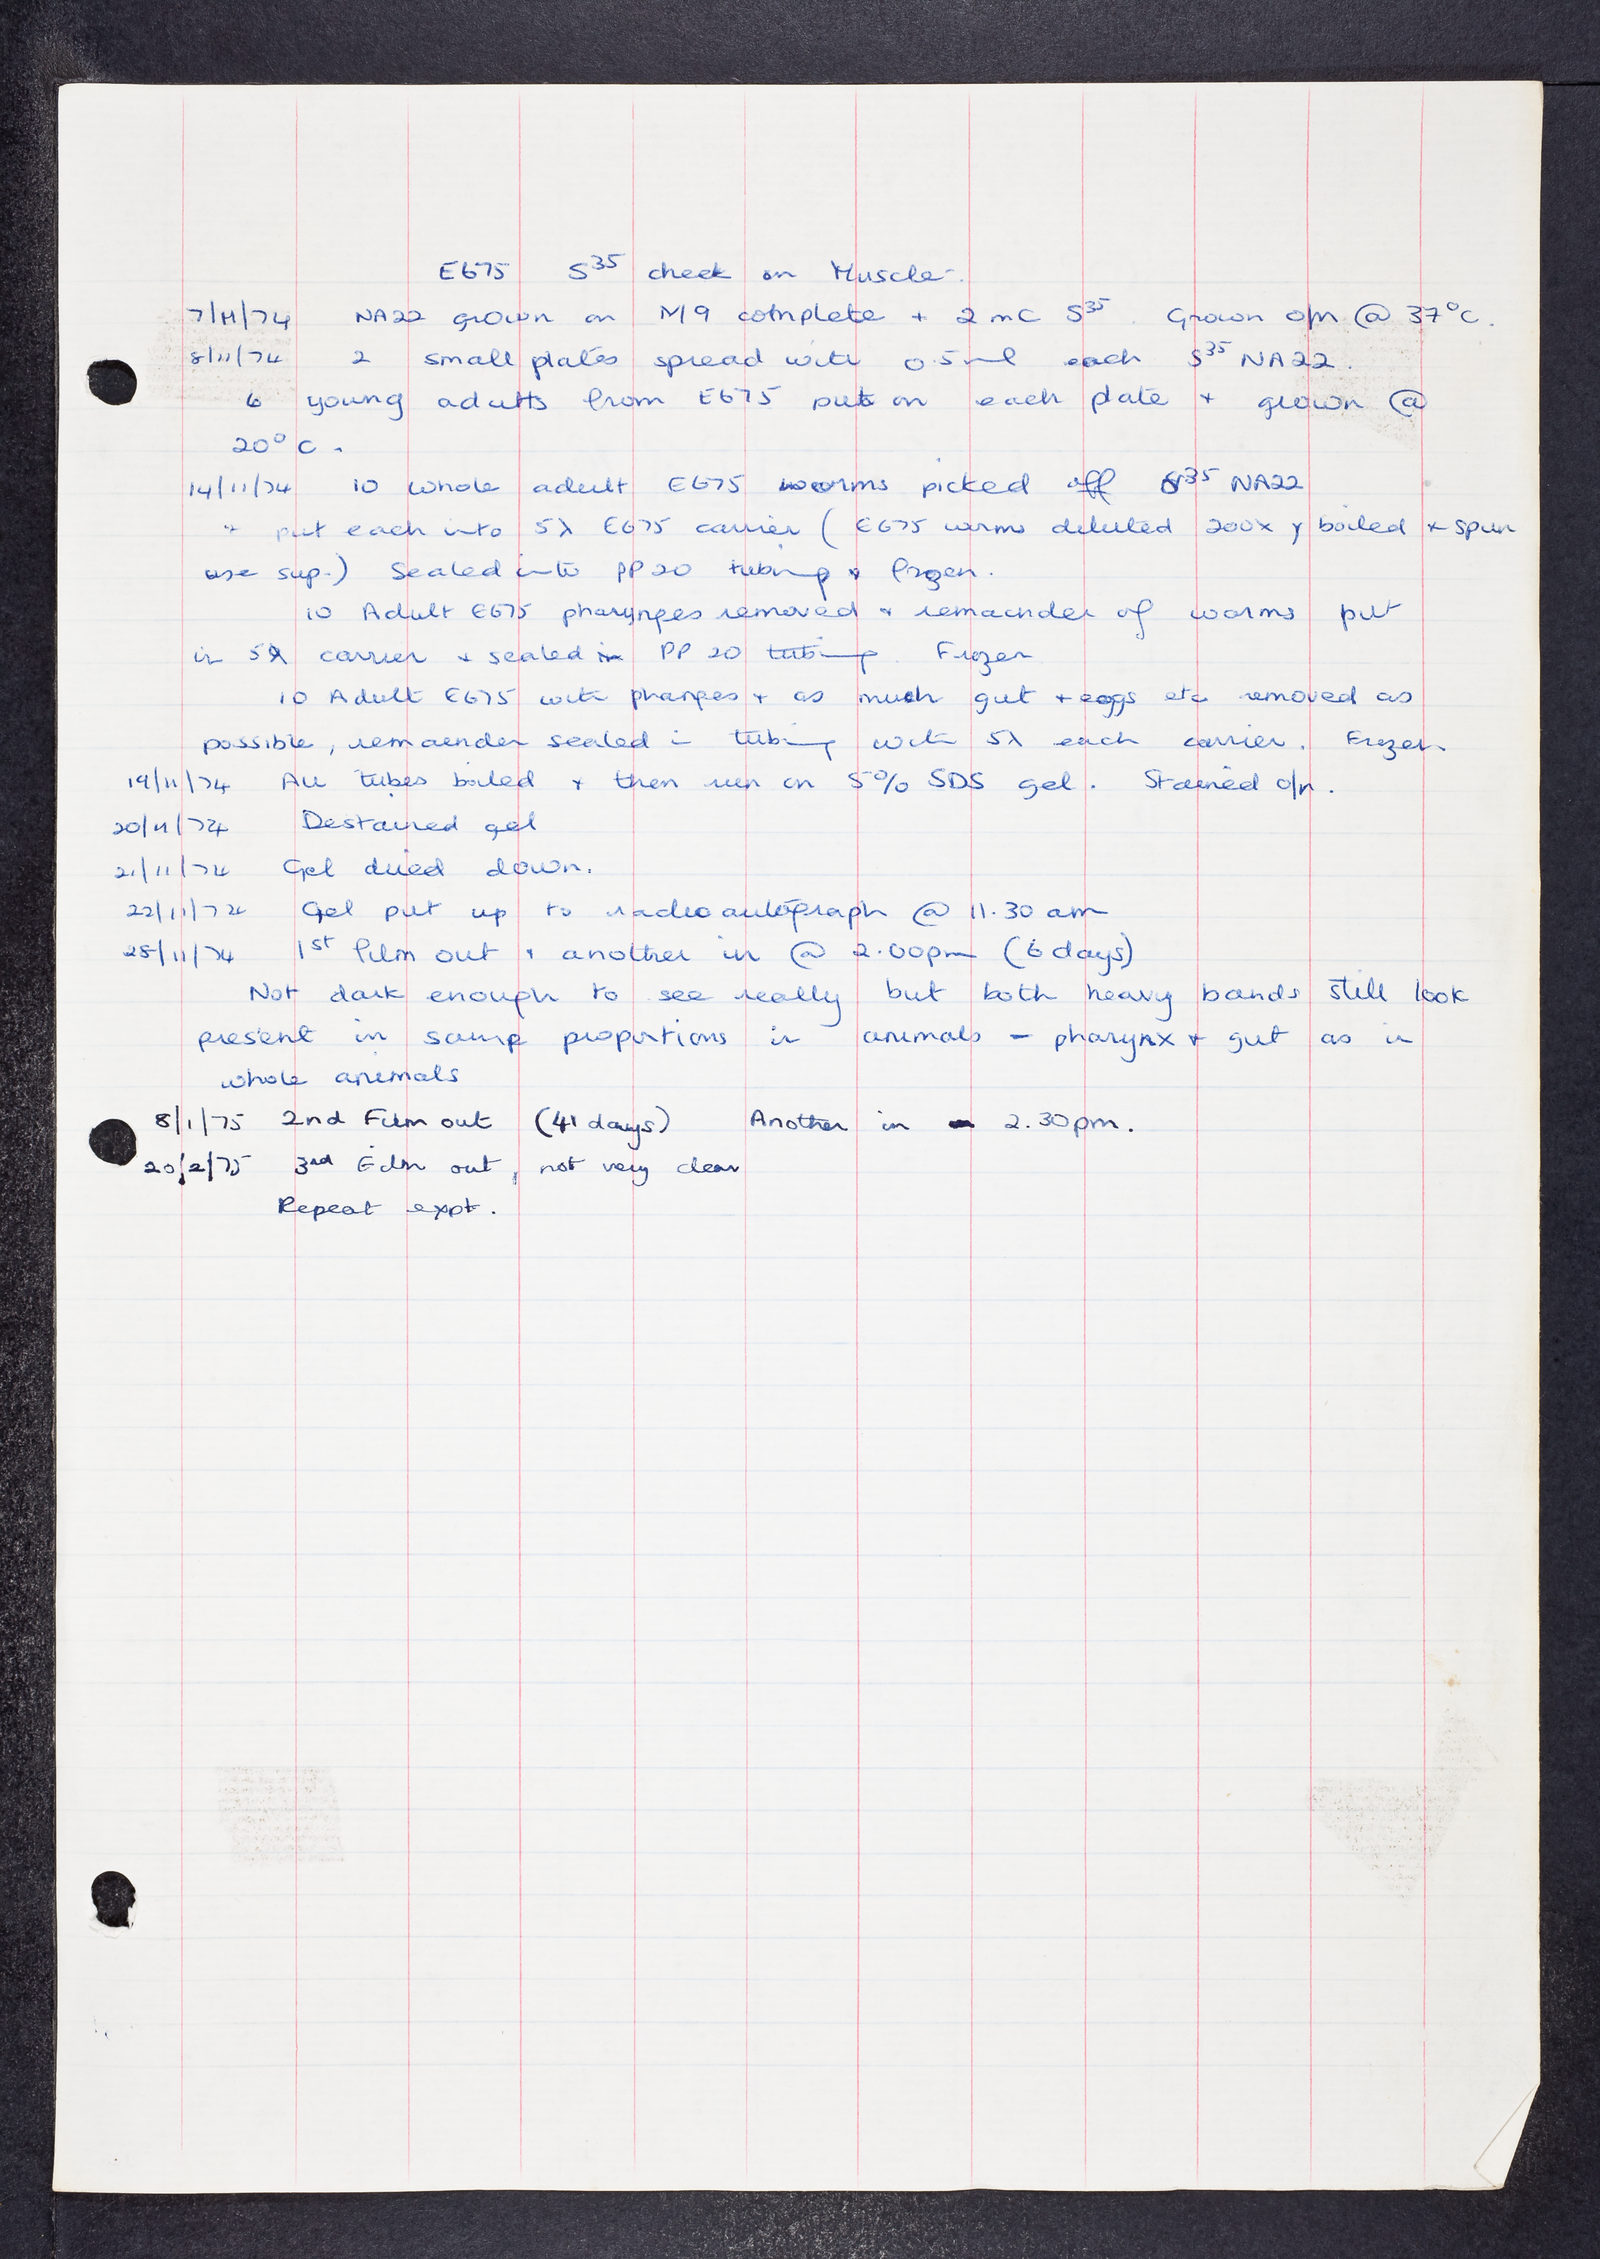 E675 S35 check on Muscle.
7/11/74 NA22 grown on M9 complete + 2 mC S35. Grown o/n @ 37°C.
8/11/74 2 small plates spread with 0.5ml each S35 NA22.
6 young adults from E675 put on each plate + grown @
20°C.
14/11/74 10 whole adult E675 worms picked off S35 NA22
+ put each into 5λ E675 carrier (E675 worms diluted 200x boiled + spun
use sup.) Sealed into PP20 tubing + frozen.
10 Adult E675 pharynges removed + remainder of worms put
in 5λ carrier + sealed in PP 20 tubing. Frozen
10 Adult E675 with pharynges + as much gut + eggs etc removed as
possible, remaender sealed in tubing with 5λ each carrier. Frozen
19/11/74 All tubes boiled + then run on 5% SDS gel. Stained o/n.
20/11/74 Destained gel
21/11/74 Gel dried down.
22/11/74 Gel put up to radioautograph @ 11.30 am
28/11/74 1st film out + another in @ 2.00pm (6 days)
Not dark enough to see really but both heavy bands still look
present in same proportions in animals - pharynx + gut as in
whole animals
8/1/75 2nd Film out (41 days) Another in 2.30pm.
20/2/75 3rd Film out, not very clear
Repeat expt.